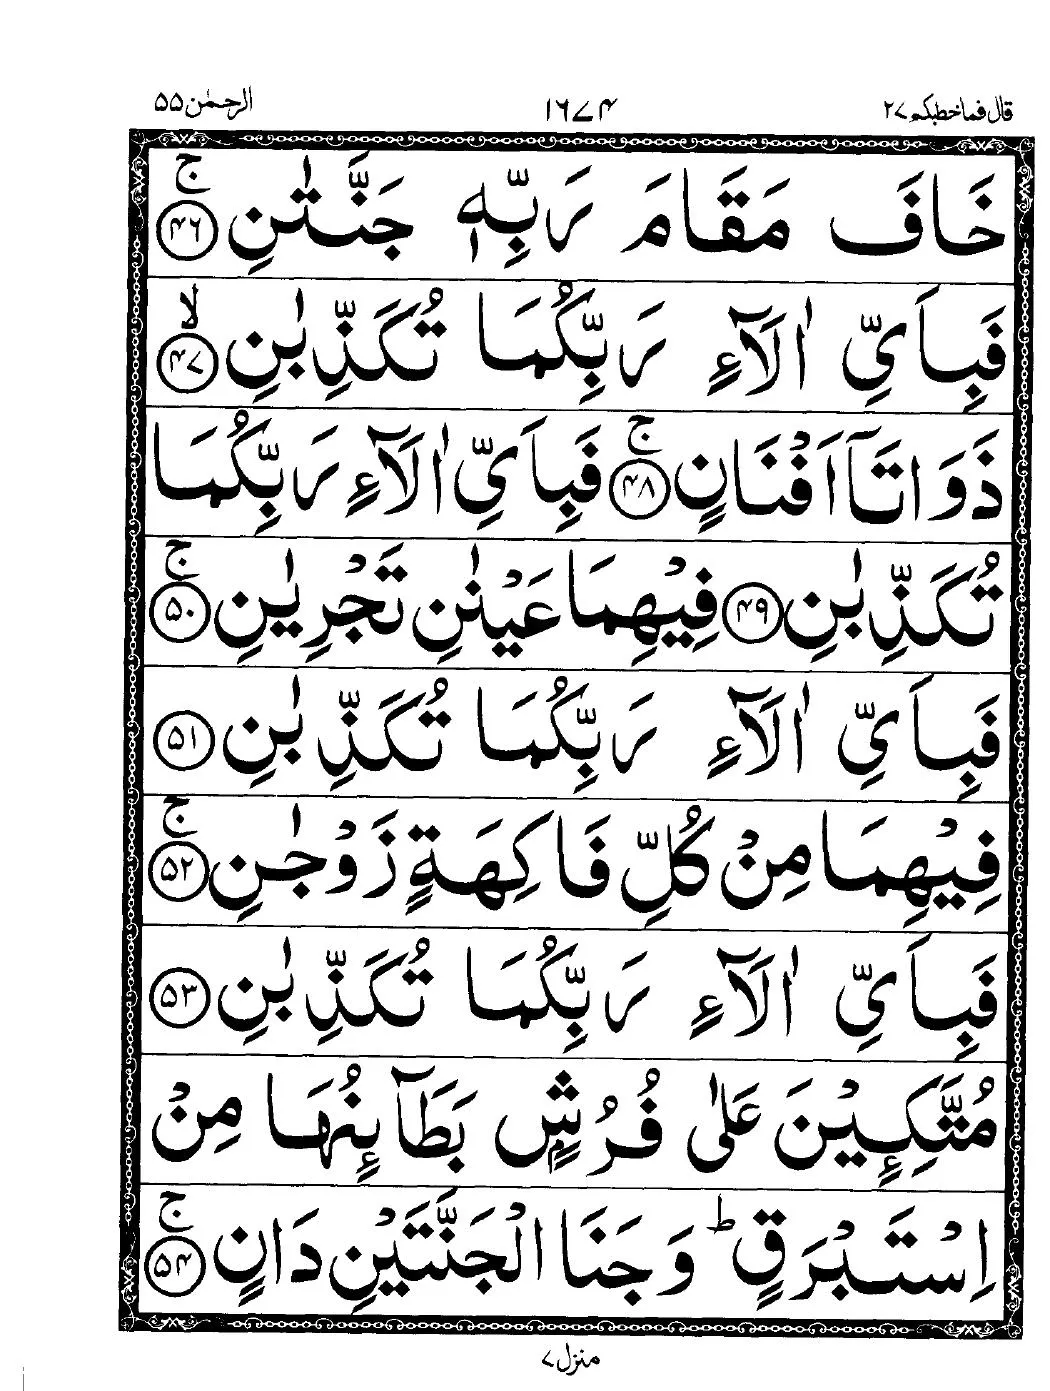 قال فماخطبکم ۲۷ ۱۶۷۴ الرحمٰن ۵۵
خَافَ مَقَامَ رَبِّهٖ جَنَّتٰنِ ۚ ﴿۴۶﴾
فَبِاَىِّ اٰلَآءِ رَبِّكُمَا تُكَذِّبٰنِ ۙ ﴿۴۷﴾
ذَوَاتَاۤ اَفْنَانٍ ۚ ﴿۴۸﴾ فَبِاَىِّ اٰلَآءِ رَبِّكُمَا
تُكَذِّبٰنِ ﴿۴۹﴾ فِيْهِمَا عَيْنٰنِ تَجْرِيٰنِ ۚ ﴿۵۰﴾
فَبِاَىِّ اٰلَآءِ رَبِّكُمَا تُكَذِّبٰنِ ﴿۵۱﴾
فِيْهِمَا مِنْ كُلِّ فَاكِهَةٍ زَوْجٰنِ ۚ ﴿۵۲﴾
فَبِاَىِّ اٰلَآءِ رَبِّكُمَا تُكَذِّبٰنِ ﴿۵۳﴾
مُتَّكِـِٕيْنَ عَلٰى فُرُشٍۭ بَطَآىِٕنُهَا مِنْ
اِسْتَبْرَقٍ ؕ وَجَنَا الْجَنَّتَيْنِ دَانٍ ۚ ﴿۵۴﴾
منزل ۷